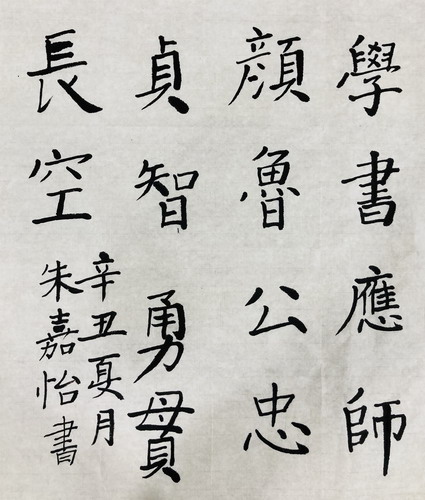 學書應師
顏魯公忠
貞智勇貫
長空
辛丑夏月
朱嘉怡書